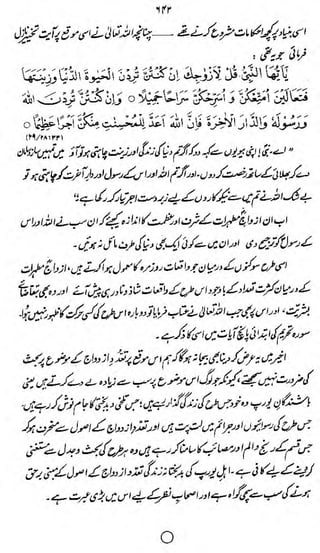 ۶۴۲
اسی بنیاد پر کچھ احکامات مشروع کرنے تھے ــــ چنانچہ اللہ تعالیٰ نے اسی موقع پر آیت تخییر نازل
فرمائی جو یہ تھی:
يٰٓاَيُّهَا النَّبِيُّ قُلْ لِّاَزْوَاجِكَ اِنْ كُنْتُنَّ تُرِدْنَ الْحَيٰوةَ الدُّنْيَا وَزِيْنَتَهَا
فَتَعَالَيْنَ اُمَتِّعْكُنَّ وَاُسَرِّحْكُنَّ سَرَاحًا جَمِيْلًا ○ وَاِنْ كُنْتُنَّ تُرِدْنَ اللّٰهَ
وَرَسُوْلَهٗ وَالدَّارَ الْاٰخِرَةَ فَاِنَّ اللّٰهَ اَعَدَّ لِلْمُحْسِنٰتِ مِنْكُنَّ اَجْرًا عَظِيْمًا ○ (۲۹/۲۸:۳۳)
"اے نبی! اپنی بیویوں سے کہہ دو کہ اگر تم دنیا کی زندگی اور زینت چاہتی ہو تو آؤ میں تمہیں ساز و سامان
دے کر بھلائی کے ساتھ رخصت کر دوں۔ اور اگر تم اللہ اور اس کے رسول اور دار آخرت کو چاہتی ہو تو
بے شک اللہ نے تم میں سے نیکوکاروں کے لیے زبردست اجر تیار کر رکھا ہے۔"
اب ان ازواج مطہرات کے شرف اور عظمت کا اندازہ کیجئے کہ ان سب نے اللہ اور اس کے
رسول کو ترجیح دی اور ان میں سے کوئی ایک بھی دنیا کی طرف مائل نہ ہوئیں۔
اسی طرح سوکنوں کے درمیان جو واقعات روزمرہ کا معمول ہوا کرتے ہیں، ازواج مطہرات
کے درمیان کثرت تعداد کے باوجود اس طرح کے واقعات شاذ و نادر ہی پیش آئے اور وہ بھی بتقاضائے
بشریت، اور اس پر بھی جب اللہ تعالیٰ نے عتاب فرمایا تو دوبارہ اس طرح کی کسی حرکت کا ظہور نہیں ہوا۔
سورۂ تحریم کی ابتدائی پانچ آیات میں اسی کا ذکر ہے۔
اخیر میں یہ عرض کر دینا بھی بیجا نہ ہوگا کہ ہم اس موقع پر تعدد ازدواج کے موضوع پر بحث
کی ضرورت نہیں سمجھتے، کیونکہ جو لوگ اس موضوع پر سب سے زیادہ لے دے کرتے ہیں یعنی
باشندگان یورپ وہ خود جس طرح کی زندگی گذار رہے ہیں، جس تلخی و بدبختی کا جام نوش کر رہے ہیں،
جس طرح کی رسوائیوں اور جرائم میں لت پت ہیں اور تعدد ازدواج کے اصول سے منحرف ہو کر
جس قسم کے رنج و الم اور مصائب کا سامنا کر رہے ہیں وہ ہر طرح کی بحث و جدل سے مستغنی
کر دینے کے لیے کافی ہے۔ اہل یورپ کی بدبختانہ زندگی تعدد ازدواج کے اصول کے مبنی بر حق
ہونے کی سب سے سچی گواہ ہے اور اصحاب نظر کے لیے اس میں بڑی عبرت ہے۔